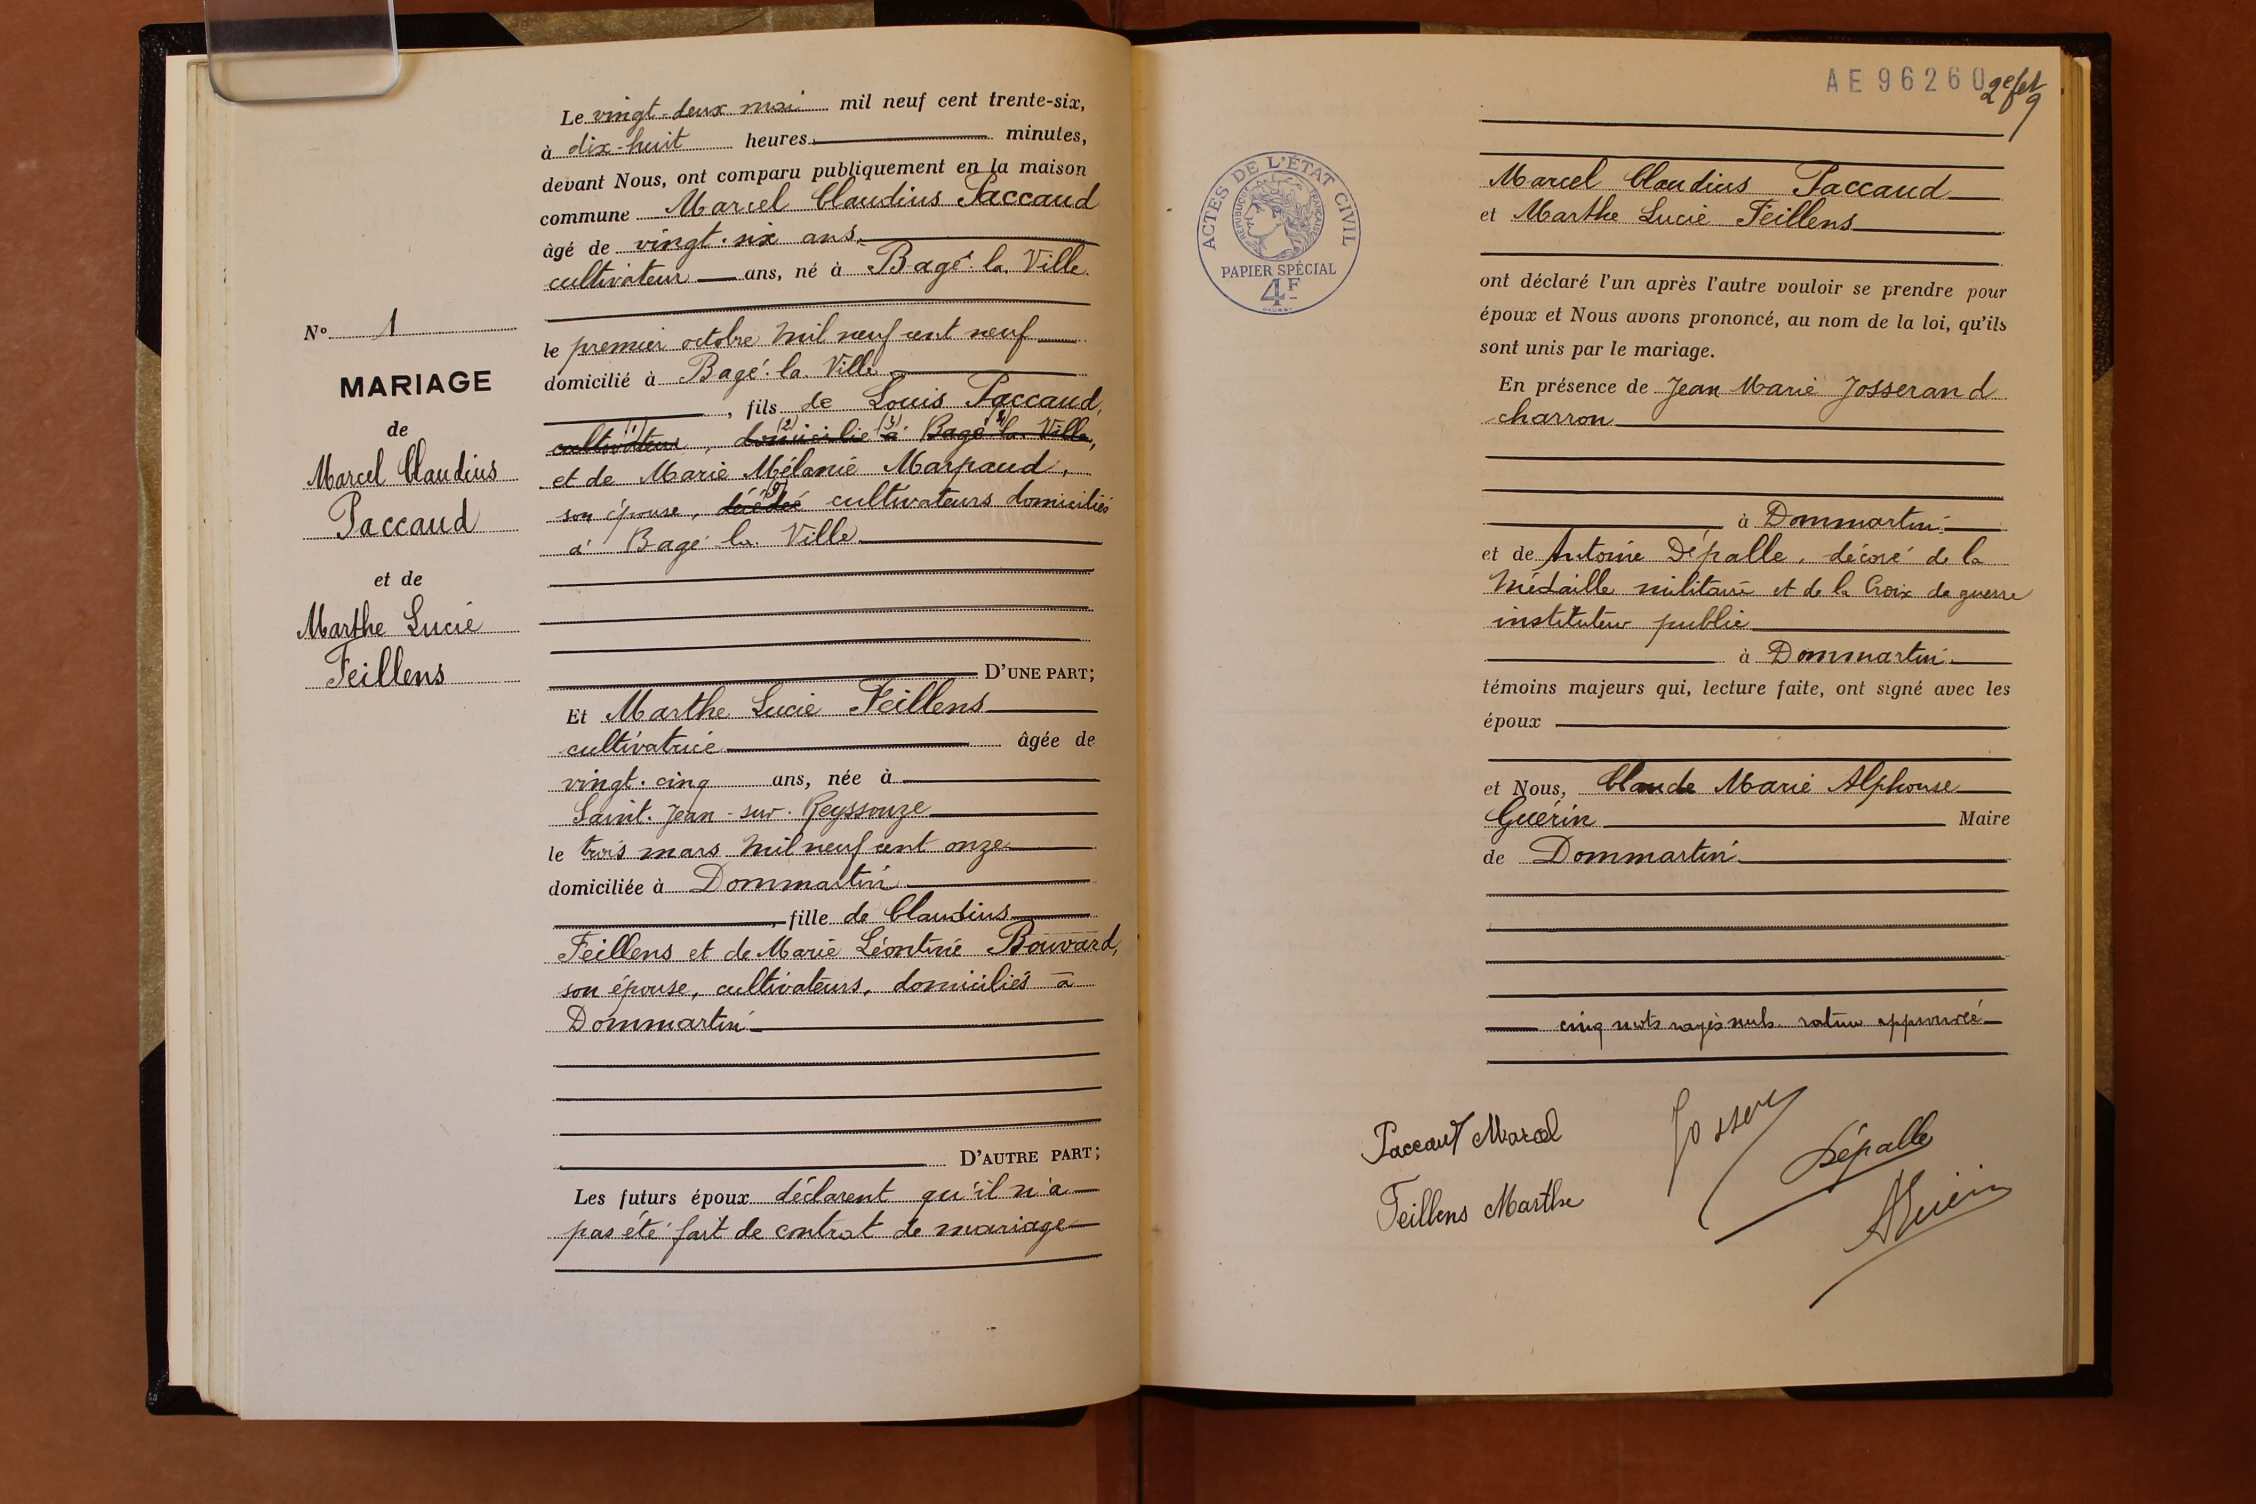 Le vingt-deux mai mil neuf cent trente-six,
à dix-huit heures minutes,
devant Nous, ont comparu publiquement en la maison
commune Marcel Claudius Paccaud
âgé de vingt-six ans
cultivateur ans, né à Bagé-la-Ville
le premier octobre mil neuf cent neuf
domicilié à Bagé-la-Ville
, fils de Louis Paccaud,
cultivateur (1), domicilié (2) à (3) Bagé-la-Ville (4),
et de Marie Mélanie Marpaud,
son épouse, décédée (5) cultivateurs domiciliés
à Bagé-la-Ville
D'UNE PART;
Et Marthe Lucie Feillens
cultivatrice âgée de
vingt-cinq ans, née à
Saint-Jean-sur-Reyssouze
le trois mars mil neuf cent onze
domiciliée à Dommartin
, fille de Claudius
Feillens et de Marie Léontine Bouvard,
son épouse, cultivateurs, domiciliés à
Dommartin
D'AUTRE PART;
Les futurs époux déclarent qu'il n'a
pas été fait de contrat de mariage
N° 1
MARIAGE
de
Marcel Claudius
Paccaud
et de
Marthe Lucie
Feillens
AE 96260
ACTES DE L'ÉTAT CIVIL
RÉPUBLIQUE FRANÇAISE
PAPIER SPÉCIAL
4F
Marcel Claudius Paccaud
et Marthe Lucie Feillens
ont déclaré l'un après l'autre vouloir se prendre pour
époux et Nous avons prononcé, au nom de la loi, qu'ils
sont unis par le mariage.
En présence de Jean Marie Josserand
charron
à Dommartin
et de Antoine Dépalle, décoré de la
Médaille militaire et de la Croix de guerre
instituteur public
à Dommartin
témoins majeurs qui, lecture faite, ont signé avec les
époux
et Nous, Claude Marie Alphonse
Guérin Maire
de Dommartin
cinq mots rayés nuls. rature approuvée
Paccaud Marcel
Feillens Marthe
Dépalle
AGuérin